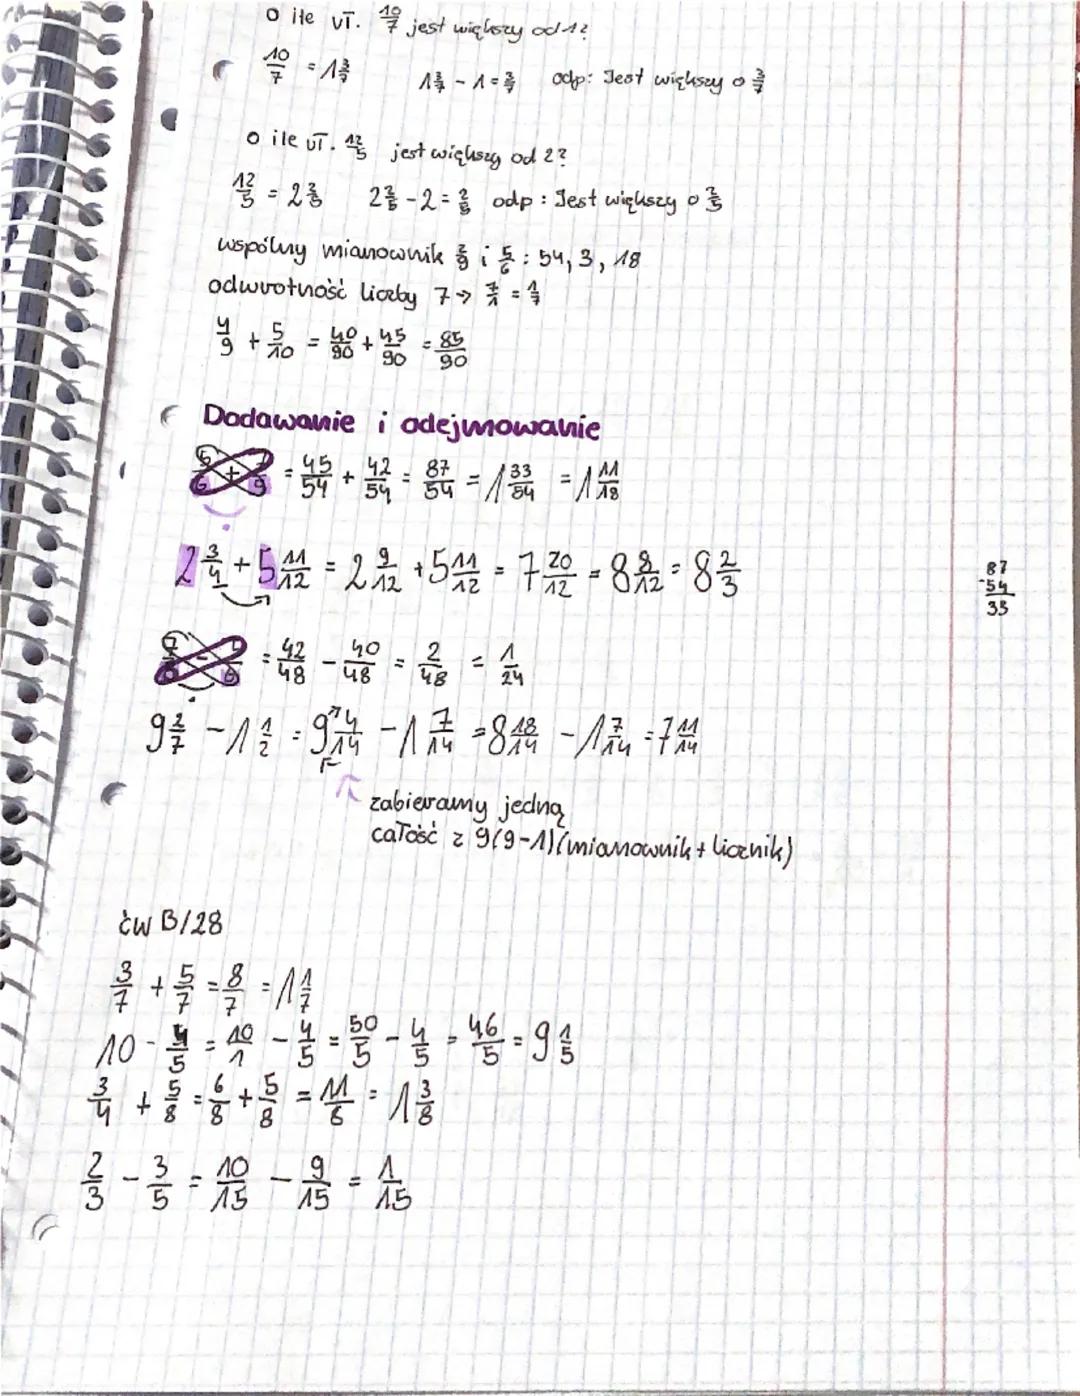 o ile uł. 10/7 jest większy od 1?
10/7 = 1 3/7    1 3/7 - 1 = 3/7    odp: Jest większy o 3/7
o ile uł. 12/5 jest większy od 2?
12/5 = 2 2/5    2 2/5 - 2 = 2/5    odp: Jest większy o 2/5
wspólny mianownik 2/9 i 5/6: 54, 3, 18
odwrotność liczby 7 → 7/1 = 1/7
4/9 + 5/10 = 40/90 + 45/90 = 85/90
Dodawanie i odejmowanie
5/6 + 7/9 = 45/54 + 42/54 = 87/54 = 1 33/54 = 1 11/18
2 3/4 + 5 11/12 = 2 9/12 + 5 11/12 = 7 20/12 = 8 8/12 = 8 2/3
87
-54
33
= 42/48 - 40/48 = 2/48 = 1/24
9 2/7 - 1 1/2 = 9 4/14 - 1 7/14 = 8 18/14 - 1 7/14 = 7 11/14
zabieramy jedną
całość z 9(9-1)(mianownik + licznik)
ćw B/28
3/7 + 5/7 = 8/7 = 1 1/7
10 - 4/5 = 10/1 - 4/5 = 50/5 - 4/5 = 46/5 = 9 1/5
3/4 + 5/8 = 6/8 + 5/8 = 11/8 = 1 3/8
2/3 - 3/5 = 10/15 - 9/15 = 1/15